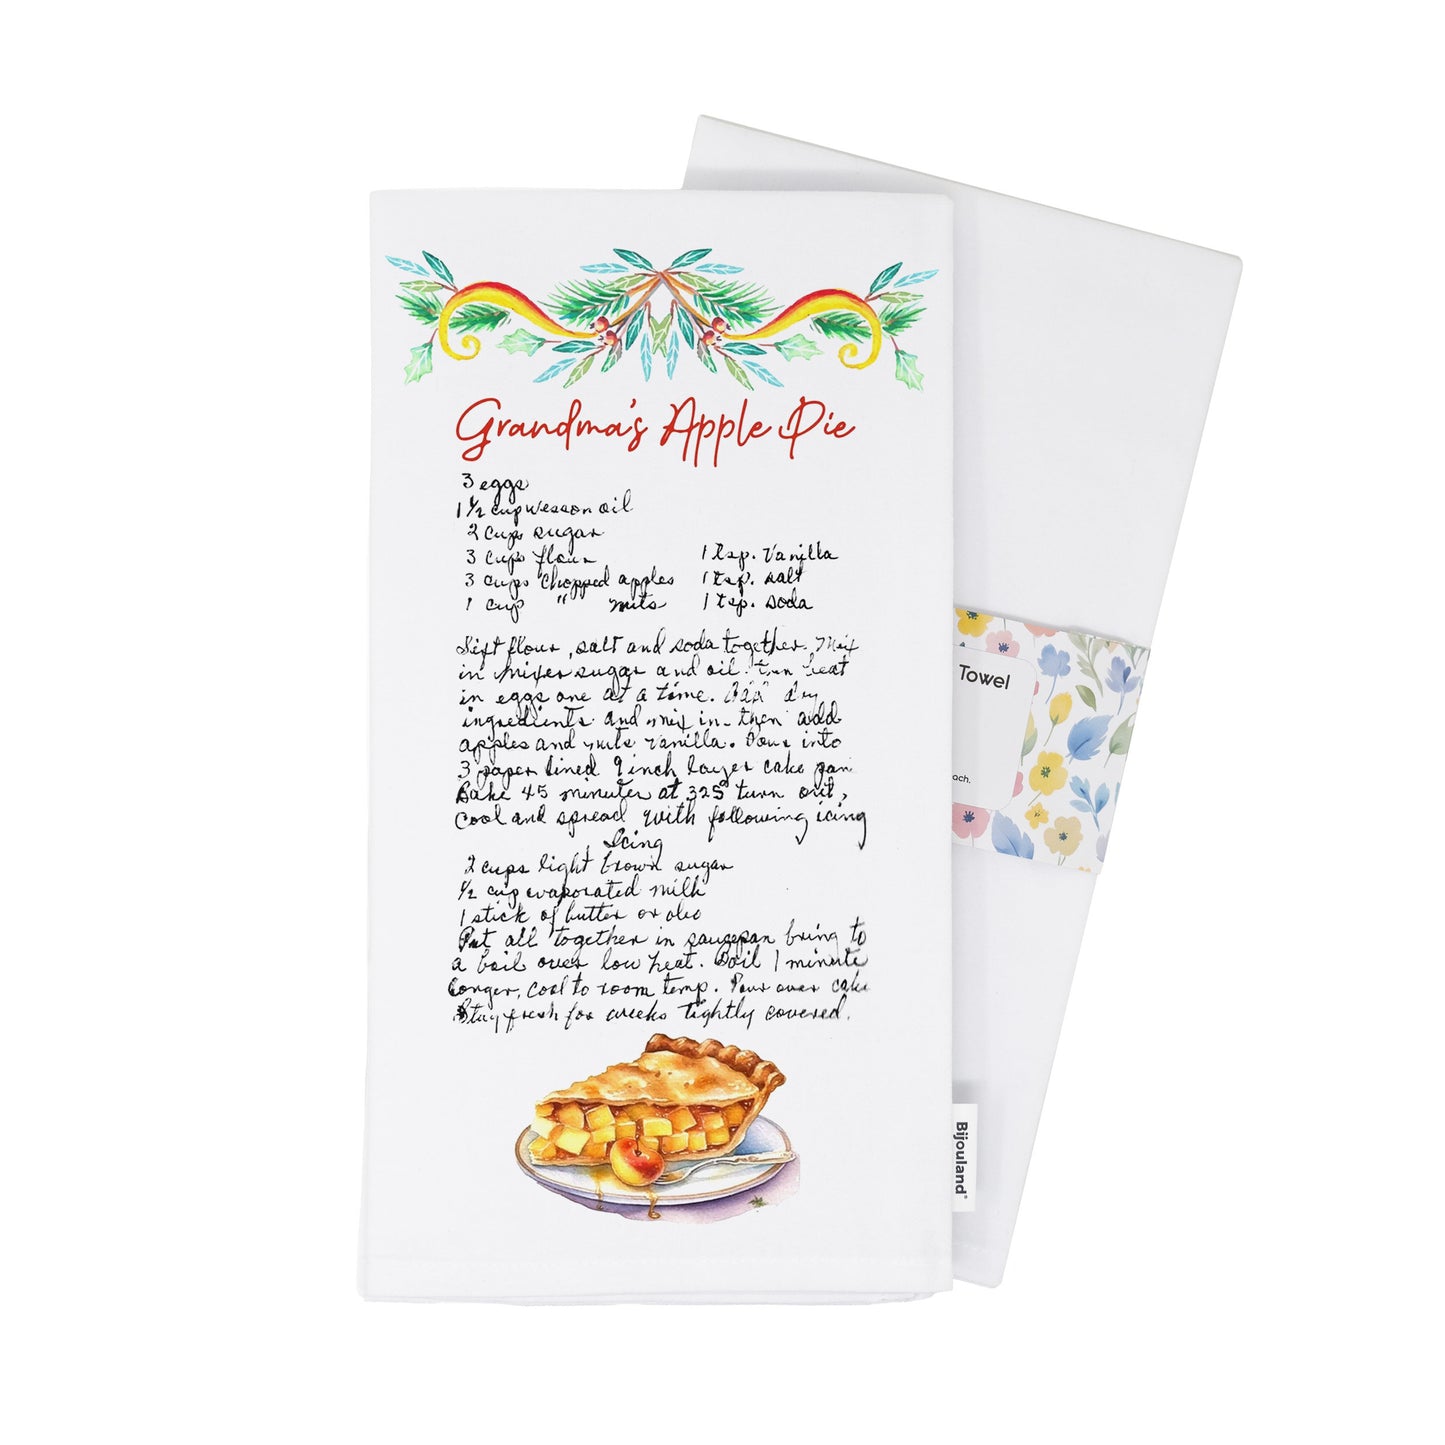 Grandma's Apple Pie
3 eggs
1 1/2 cup wesson oil
2 cups sugar
3 cups flour 1 tsp. Vanilla
3 cups chopped apples 1 tsp. salt
1 cup " nuts 1 tsp. soda
Sift flour, salt and soda together. Mix
in mixer sugar and oil. then beat
in eggs one at a time. Add dry
ingredients and mix in - then add
apples and nuts vanilla. Pour into
3 paper lined 9 inch layer cake pan
Bake 45 minutes at 325° turn out,
Cool and spread with following icing
Icing
2 cups light brown sugar
1/2 cup evaporated milk
1 stick of butter or oleo
Put all together in saucepan bring to
a boil over low heat. Boil 1 minute
longer, cool to room temp. Pour over cake
Stay fresh for weeks tightly covered.
Towel
ach.
Bijouland®